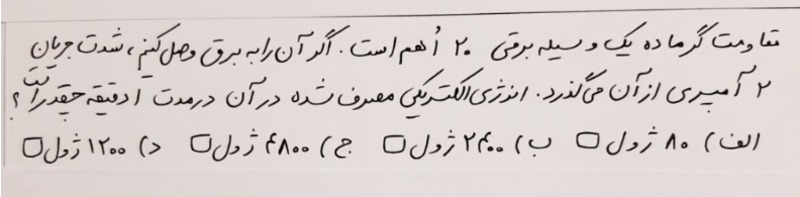 مقاومت گرماده یک وسیله برقی ۲۰ اُهم است. اگر آن را به برق وصل کنیم، شدت جریان
۲ آمپری از آن می‌گذرد. انرژی الکتریکی مصرف شده در آن در مدت ۱ دقیقه چقدر است؟
الف) ۸۰ ژول □ ب) ۲۴۰۰ ژول □ ج) ۴۸۰۰ ژول □ د) ۱۲۰۰ ژول □